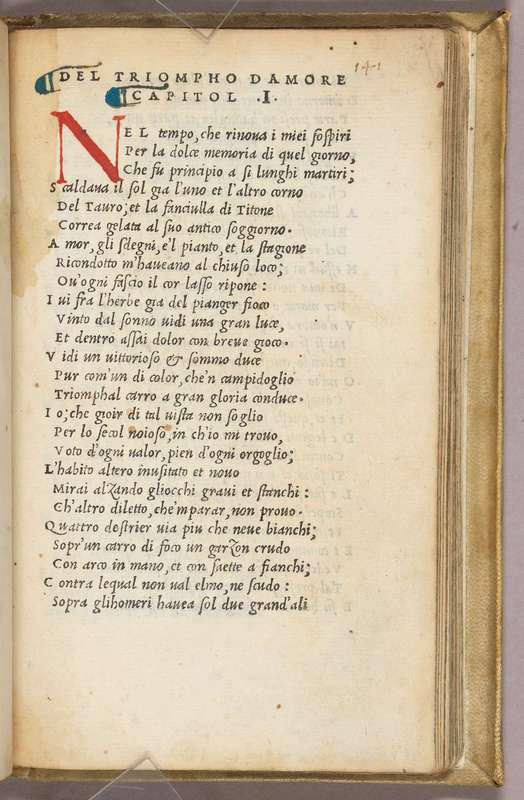 141
DEL TRIOMPHO D'AMORE
CAPITOL .I.
NEL tempo, che rinoua i miei sospiri
Per la dolce memoria di quel giorno,
Che fu principio a si lunghi martiri;
Scaldaua il sol gia l'uno et l'altro corno
Del Tauro; et la fanciulla di Titone
Correa gelata al suo antico soggiorno.
Amor, gli sdegni, e'l pianto, et la stagione
Ricondotto m'haueano al chiuso loco;
Ou'ogni fascio il cor lasso ripone:
Iui fra l'herbe gia del pianger fioco
Vinto dal sonno uidi una gran luce,
Et dentro assai dolor con breue gioco.
Vidi un uittorioso & sommo duce
Pur com'un di color, che'n campidoglio
Triomphal carro a gran gloria conduce.
Io; che gioir di tal uista non soglio
Per lo secol noioso, in ch'io mi trouo,
Voto d'ogni ualor, pien d'ogni orgoglio;
L'habito altero inusitato et nouo
Mirai alzando gliocchi graui et stanchi:
Ch'altro diletto, che'mparar, non prouo.
Quattro destrier uia piu che neue bianchi;
Sopr'un carro di foco un garzon crudo
Con arco in mano, et con saette a fianchi;
Contra lequal non ual elmo, ne scudo:
Sopra glihomeri hauea sol due grand'ali